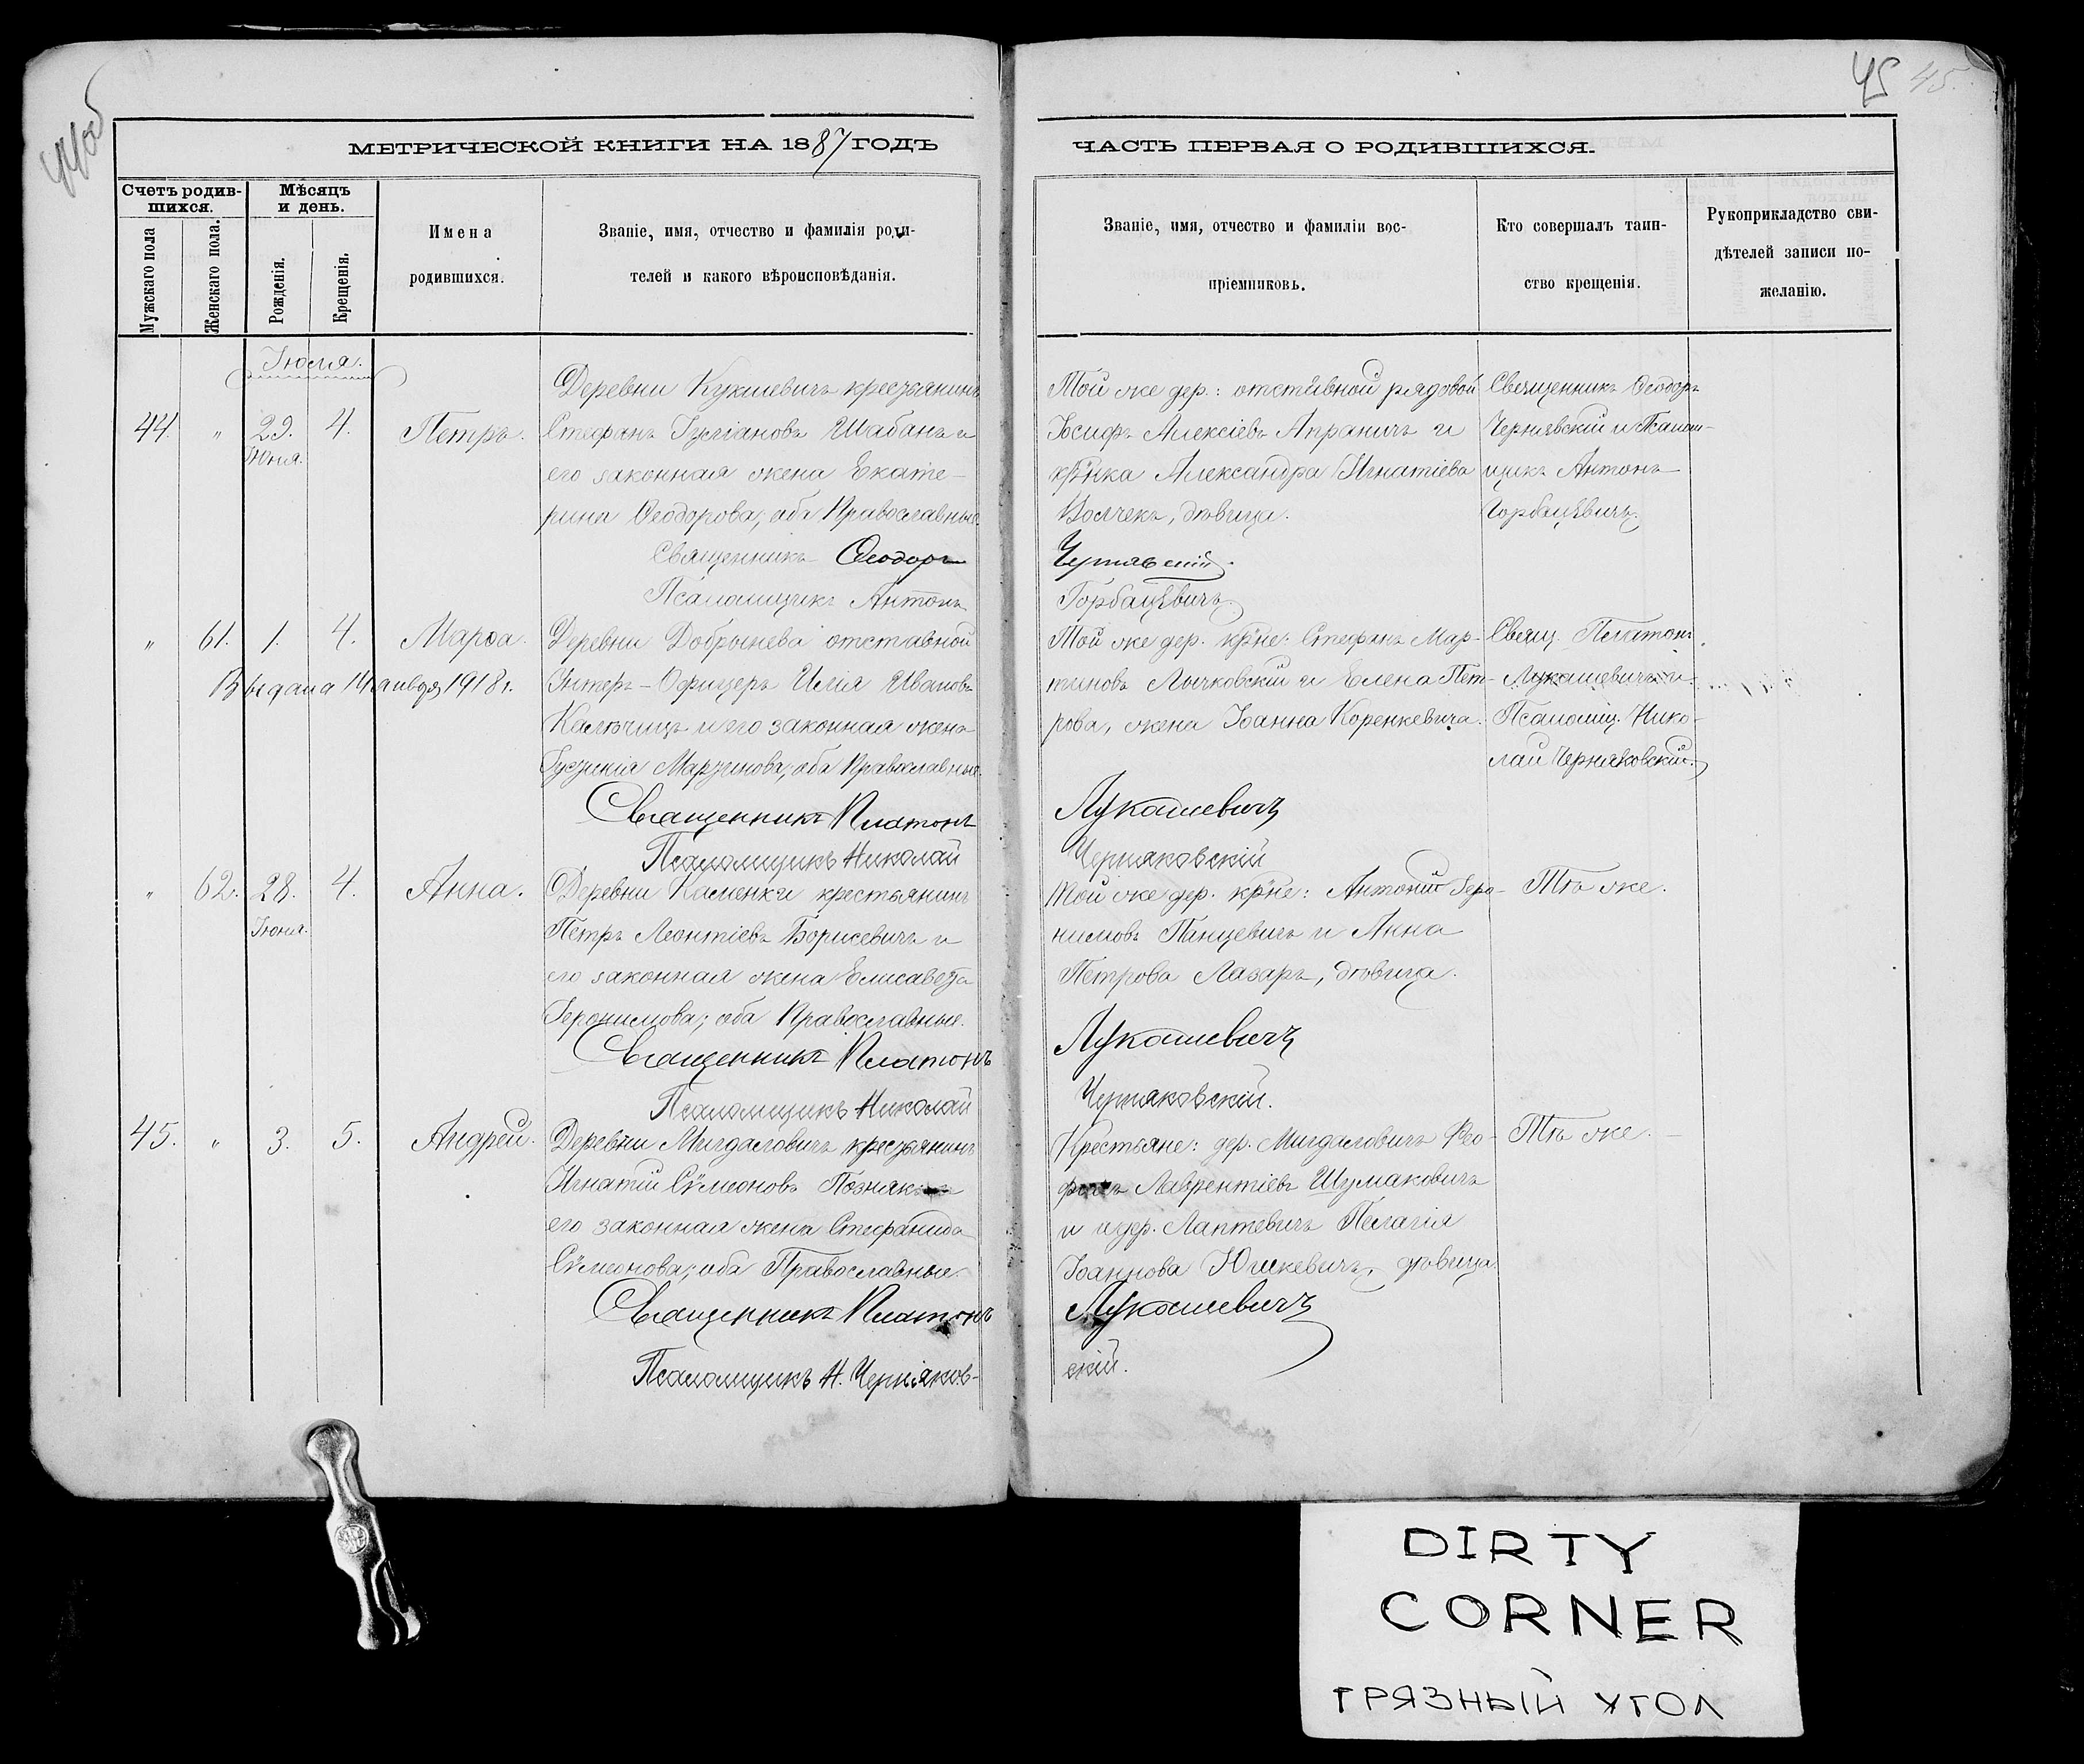 44об
45 45.
МЕТРИЧЕСКОЙ КНИГИ НА 1887 ГОДЪ
ЧАСТЬ ПЕРВАЯ О РОДИВШИХСЯ.
Счетъ родив-
шихся.
Мужскаго пола
Женскаго пола.
Мѣсяцъ
и день.
Рожденія.
Крещенія.
Имена
родившихся.
Званіе, имя, отчество и фамилія роди-
телей и какого вѣроисповѣданія.
Званіе, имя, отчество и фамиліи вос-
пріемниковъ.
Кто совершалъ таин-
ство крещенія.
Рукоприкладство сви-
дѣтелей записи по-
желанію.
Іюля.
44. " 29. 4. Петръ.
Іюня.
Деревни Кукшевичъ крестьянинъ
Стефанъ Шабанъ и
его законная жена Екате-
рина Ѳеодорова; оба Православные.
Священникъ Ѳеодоръ
Псаломщикъ Антонъ
Той же дер.: отставной рядовой
Іосифъ Алексіевъ Апраничъ и
кр̃нка Александра Игнатіева
Волчекъ, дѣвица.
Чернявскій.
Горбацѣвичъ.
Священникъ Ѳеодоръ
Чернявскій и Псалом-
щикъ Антонъ
Горбацѣвичъ.
" 61. 1. 4. Марѳа.
Выдана 14 января 1918 г.
Деревни Добрынева отставной
Унтеръ-Офицеръ Илія Ивановъ
Калючицъ и его законная жена
Мартинова; оба Православные.
Священникъ Платонъ
Псаломщикъ Николай
Той же дер. кр̃не: Стефанъ Мар-
тиновъ Лычковскій и Елена Пет-
рова, жена Іоанна Коренкевича.
Лукашевичъ
Черняковскій
Свящ. Платонъ
Лукашевичъ и
Псаломщ. Нико-
лай Черняковскій.
" 62. 28. 4. Анна.
Іюня.
Деревни Каменки крестьянинъ
Петръ Леонтіевъ Борисевичъ и
его законная жена Елисавета
Іеронимова; оба Православные.
Священникъ Платонъ
Псаломщикъ Николай
Той же дер. кр̃не: Антоній Іеро-
нимовъ Панцевичъ и Анна
Петрова Лазаръ, дѣвица.
Лукашевичъ
Черняковскій.
Тѣ же.
45. " 3. 5. Андрей.
Деревни Мигдаловичъ крестьянинъ
Игнатій Сѵмеоновъ Позняк
его законная жена Стефанида
Сѵмеонова; оба Православные.
Священникъ Платонъ
Псаломщикъ Н. Черняков-
Крестьяне: дер. Мигдаловичъ Ѳео-
Лаврентіевъ Шумаковичъ
и дер. Лаптевичъ Пелагія
Іоаннова Юшкевичъ, дѣвица.
Лукашевичъ
скій.
Тѣ же.
DIRTY
CORNER
ГРЯЗНЫЙ УГОЛ